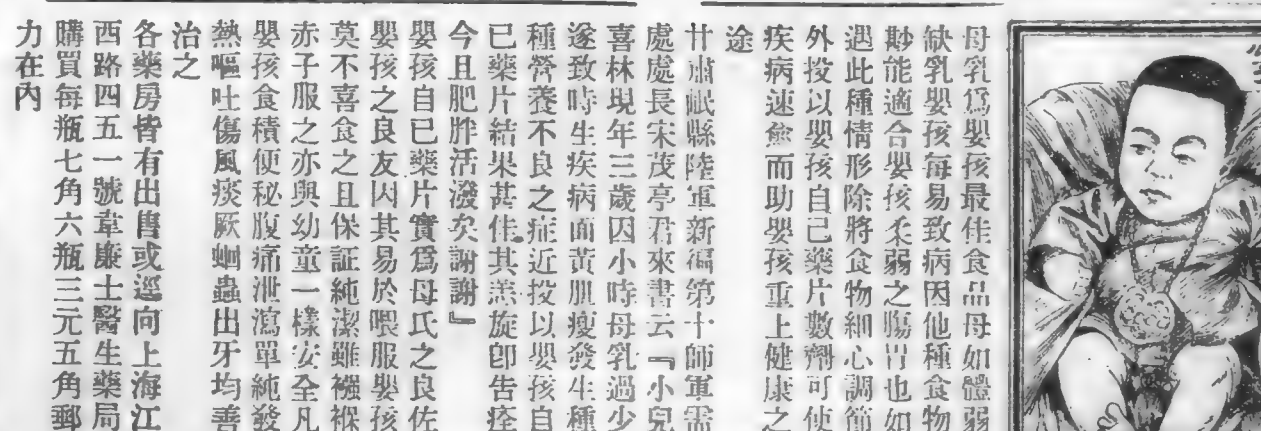 母乳爲嬰孩最佳食品母如體弱
缺乳嬰孩每易致病因他種食物
尠能適合嬰孩柔弱之腸胃也如
遇此種情形除將食物細心調節
外投以嬰孩自己藥片數劑可使
疾病速愈而助嬰孩重上健康之
途
甘肅岷縣陸軍新編第十師軍需
處處長宋茂亭君來書云『小兒
喜林現年三歲因小時母乳過少
遂致時生疾病面黃肌瘦發生種
種營養不良之症近投以嬰孩自
已藥片結果甚佳其恙旋卽告痊
今且肥胖活潑矣謝謝』
嬰孩自已藥片實爲母氏之良佐
嬰孩之良友因其易於喂服嬰孩
莫不喜食之且保証純潔雖襁褓
赤子服之亦與幼童一樣安全凡
嬰孩食積便秘腹痛泄瀉單純發
熱嘔吐傷風痰厥蛔蟲出牙均善
治之
各藥房皆有出售或逕向上海江
西路四五一號韋廉士醫生藥局
購買每瓶七角六瓶三元五角郵
力在內